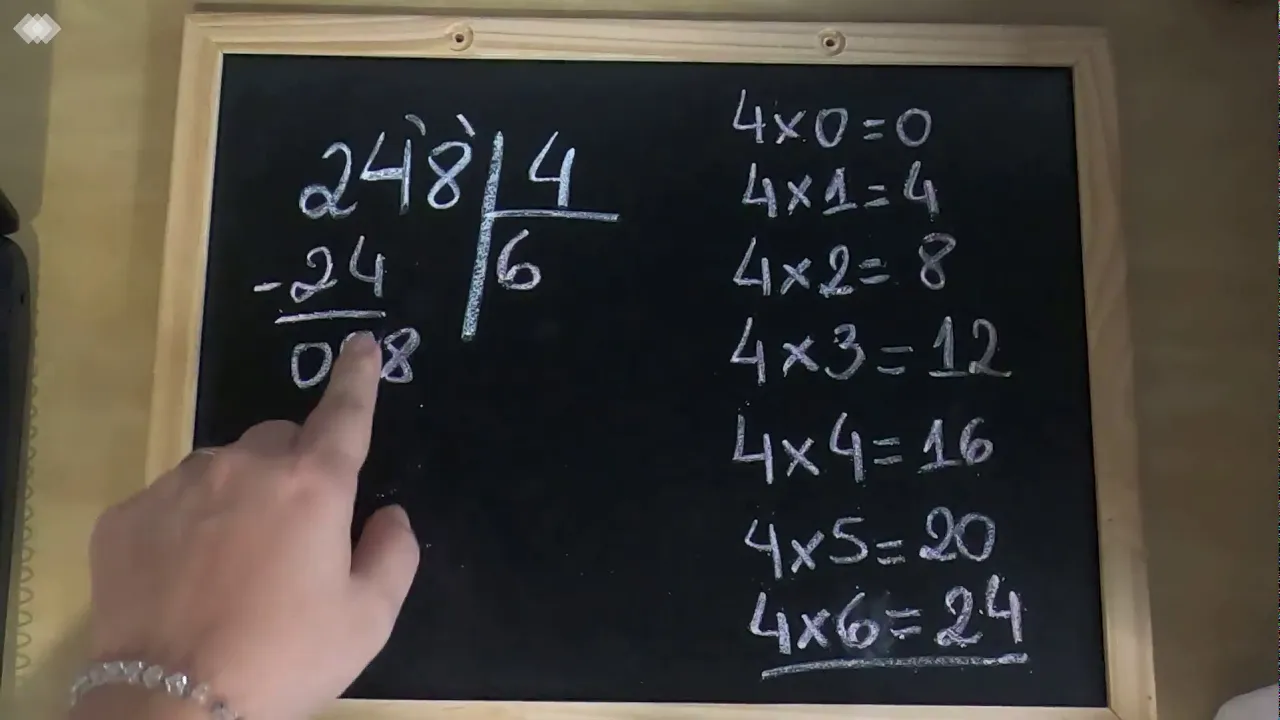 248 4
-24 6
008
4×0=0
4×1=4
4×2=8
4×3=12
4×4=16
4×5=20
4×6=24